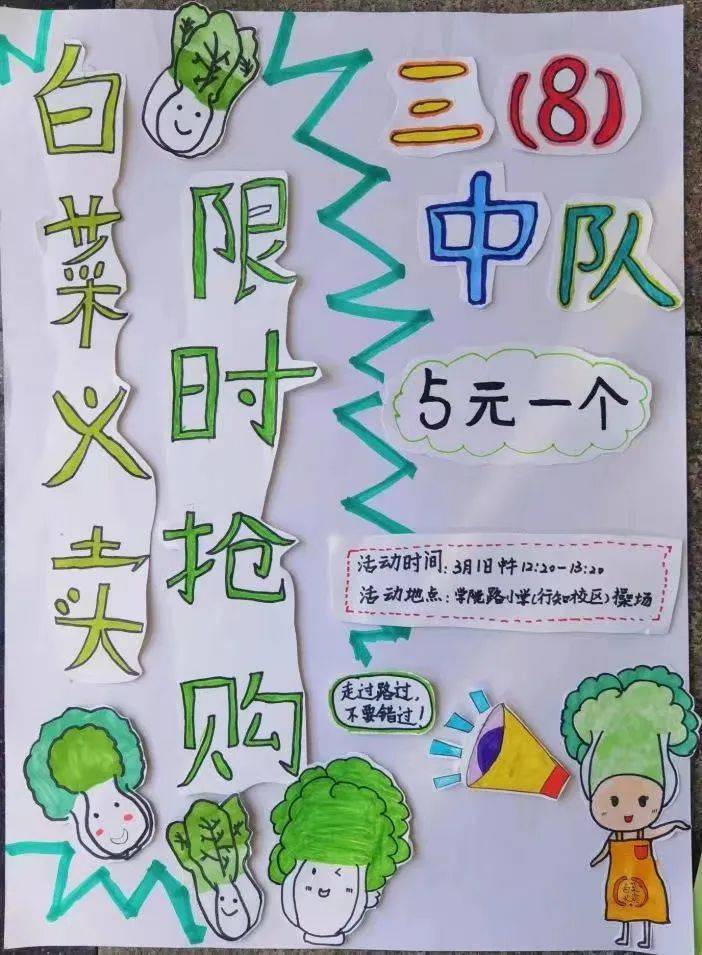 白菜义卖
限时抢购
三(8)
中队
5元一个
活动时间:3月1日中午12:20-13:20
活动地点:学院路小学(行知校区)操场
走过路过,
不要错过!